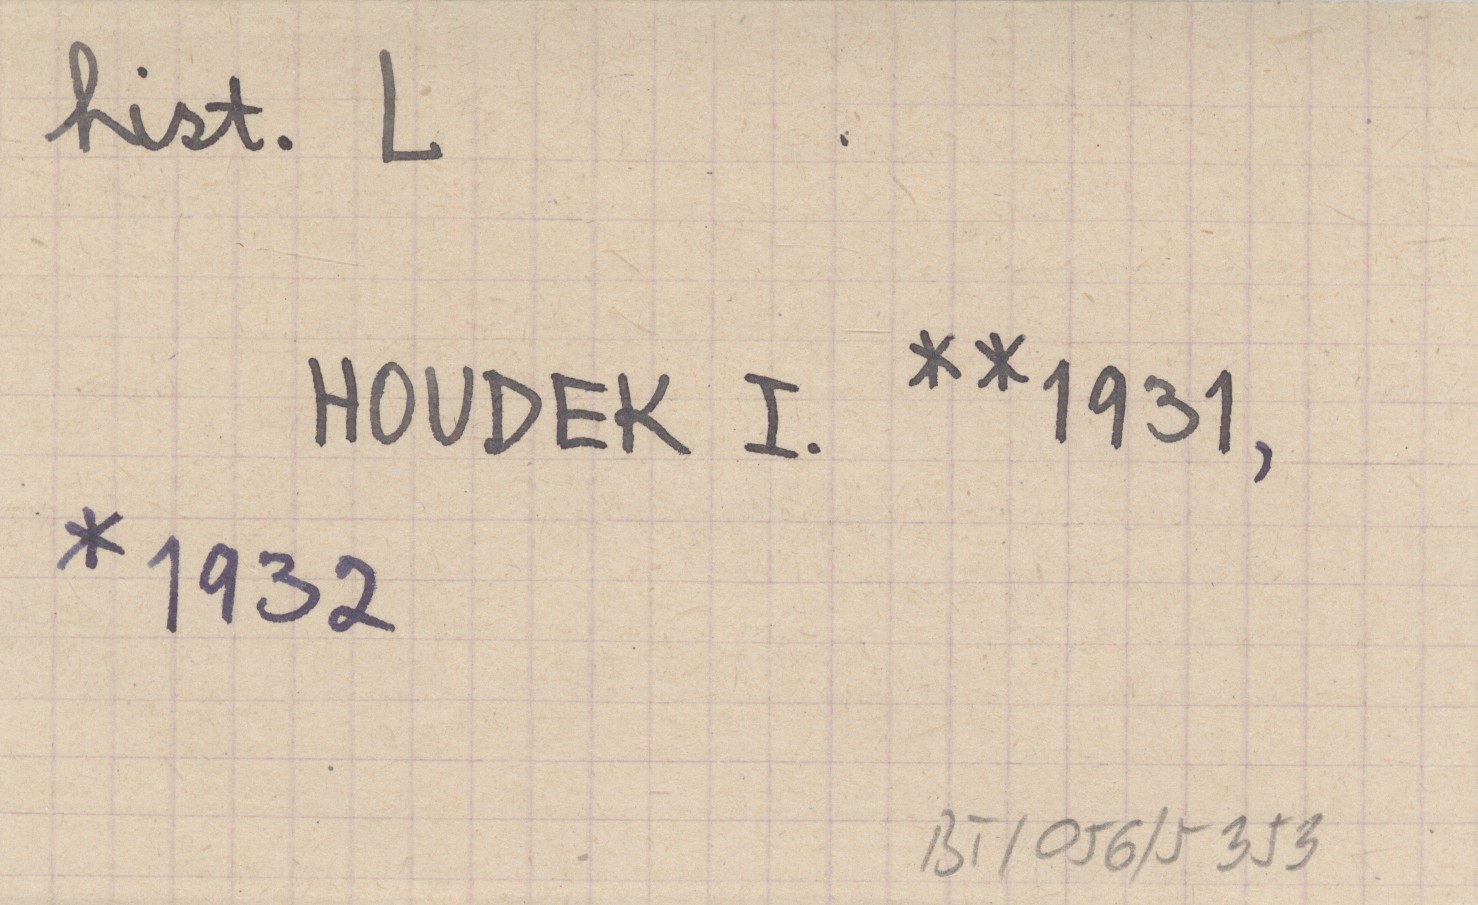 hist. L
HOUDEK I. **1931,
*1932
BT/056/5 353